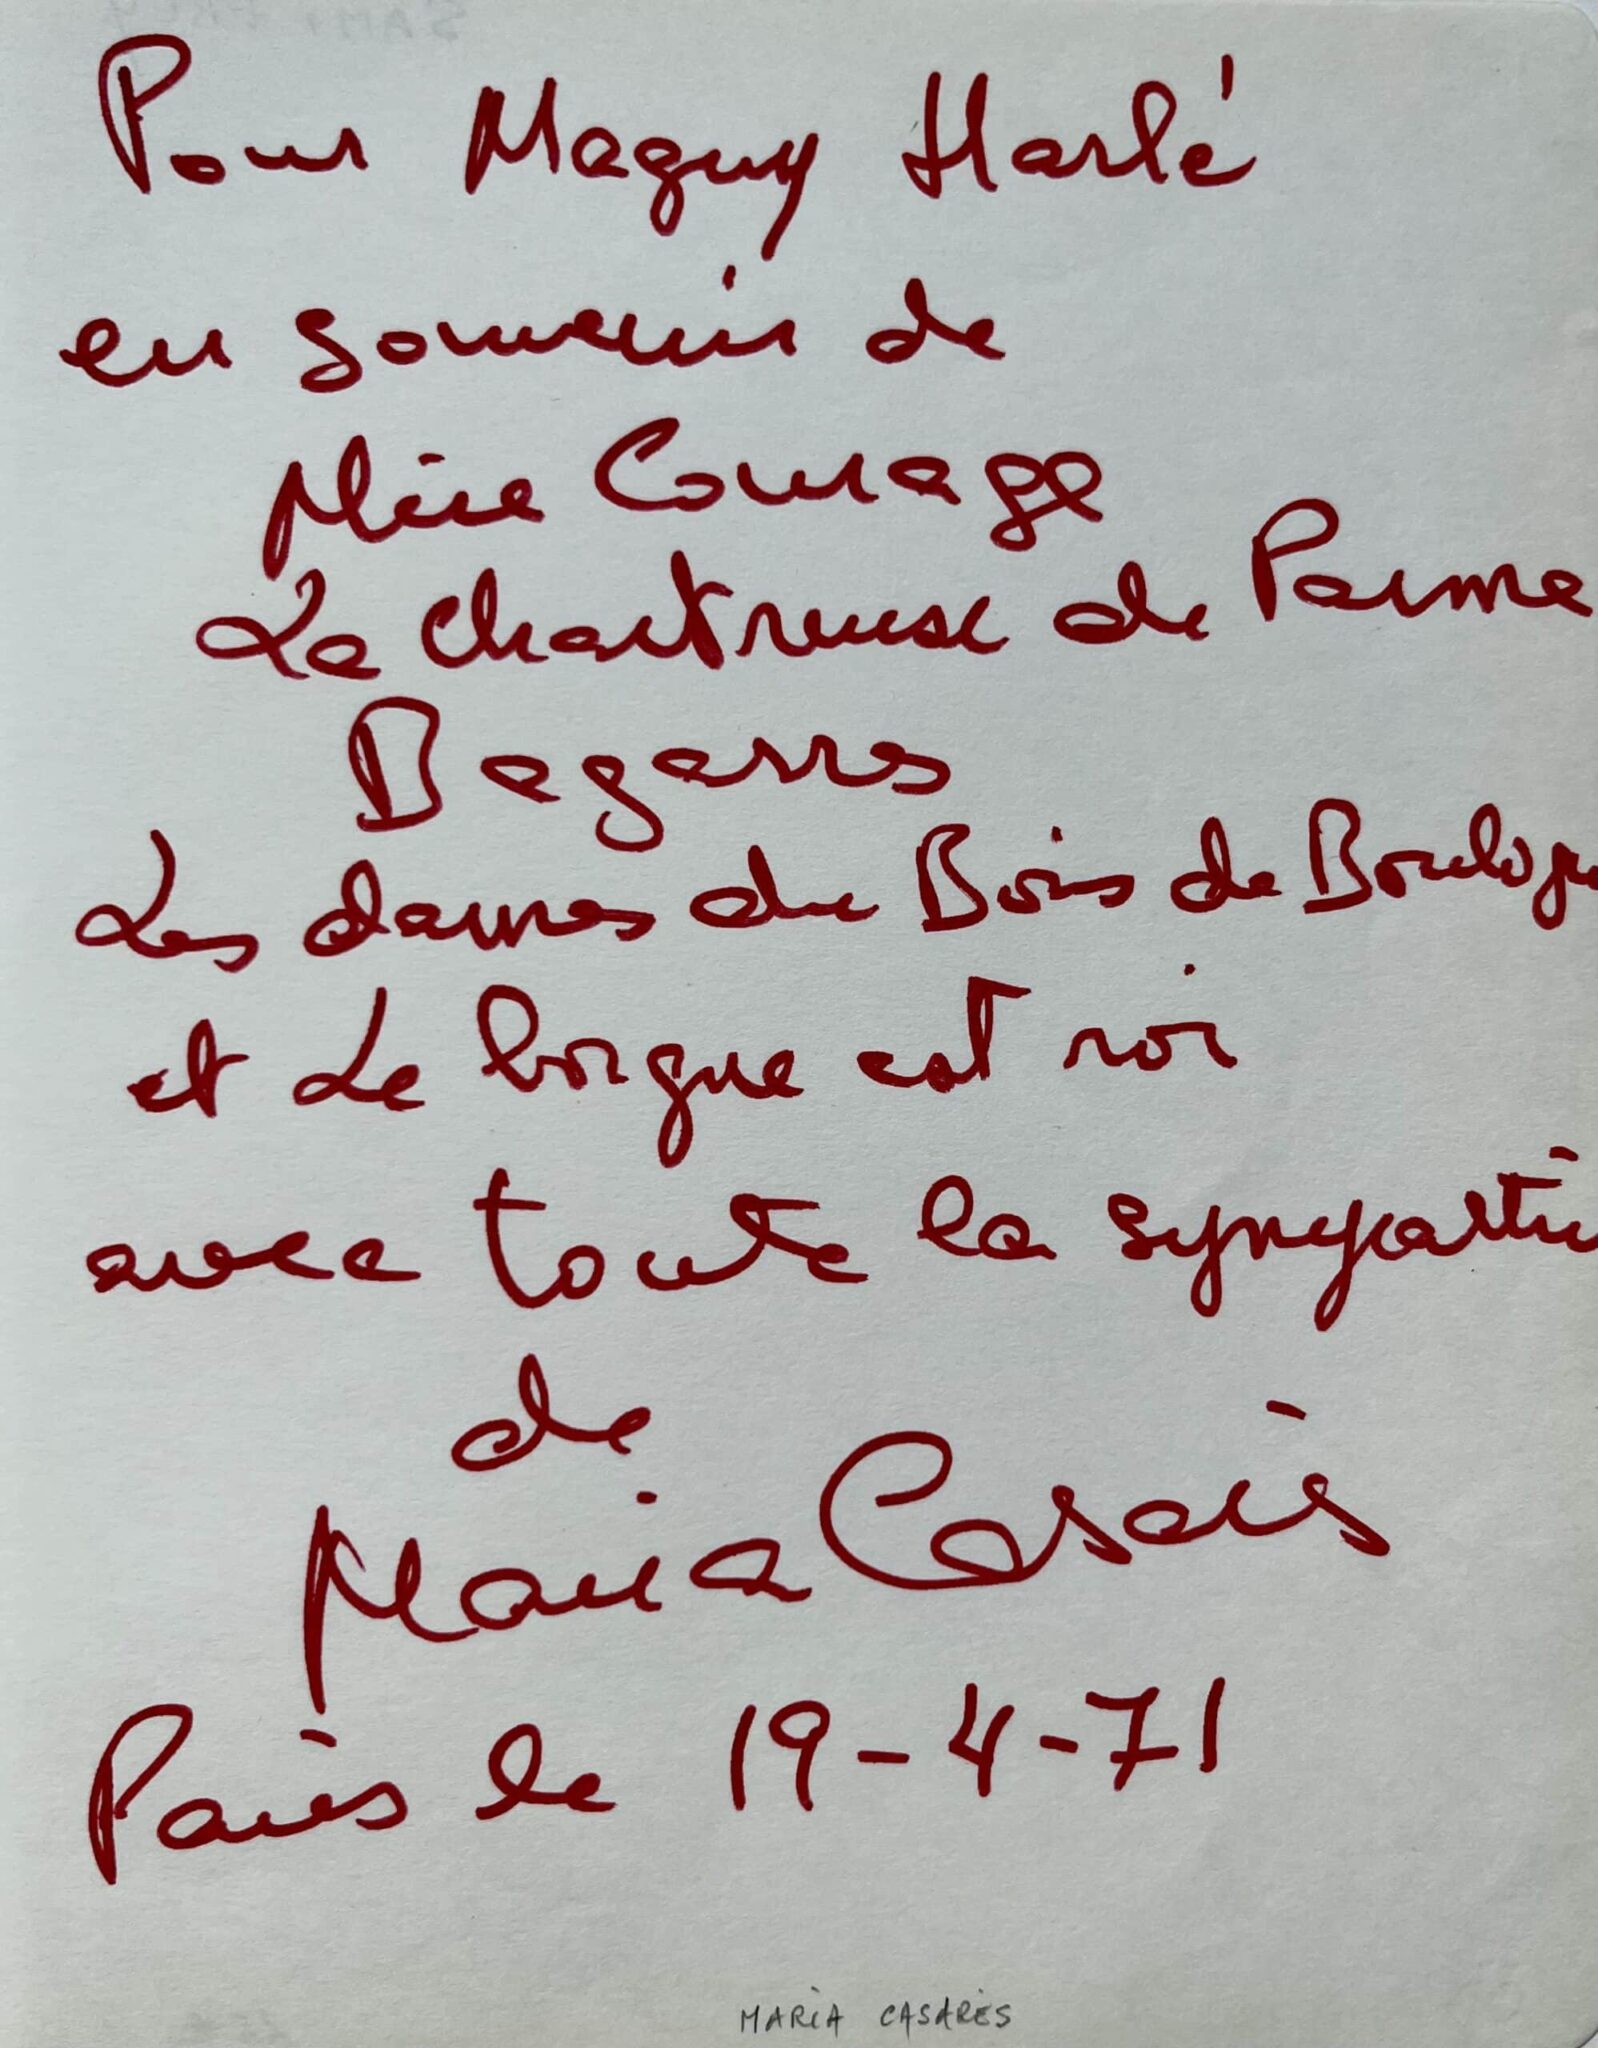 Pour Maguy Harlé
en souvenir de
Mère Courage
La Chartreuse de Parme
Bagarres
Les dames du Bois de Boulogne
et Le borgne est roi
avec toute la sympathie
de
Maria Casarès
Paris le 19-4-71
MARIA CASARÈS